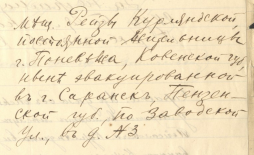 мѣщ. Рейзы Курляндской
постоянной жительницы
г. Поневѣжа, Ковенской губ,
нынѣ эвакуированной
въ г. Саранск, Пензен-
ской губ. по Заводской
ул., въ д. №3